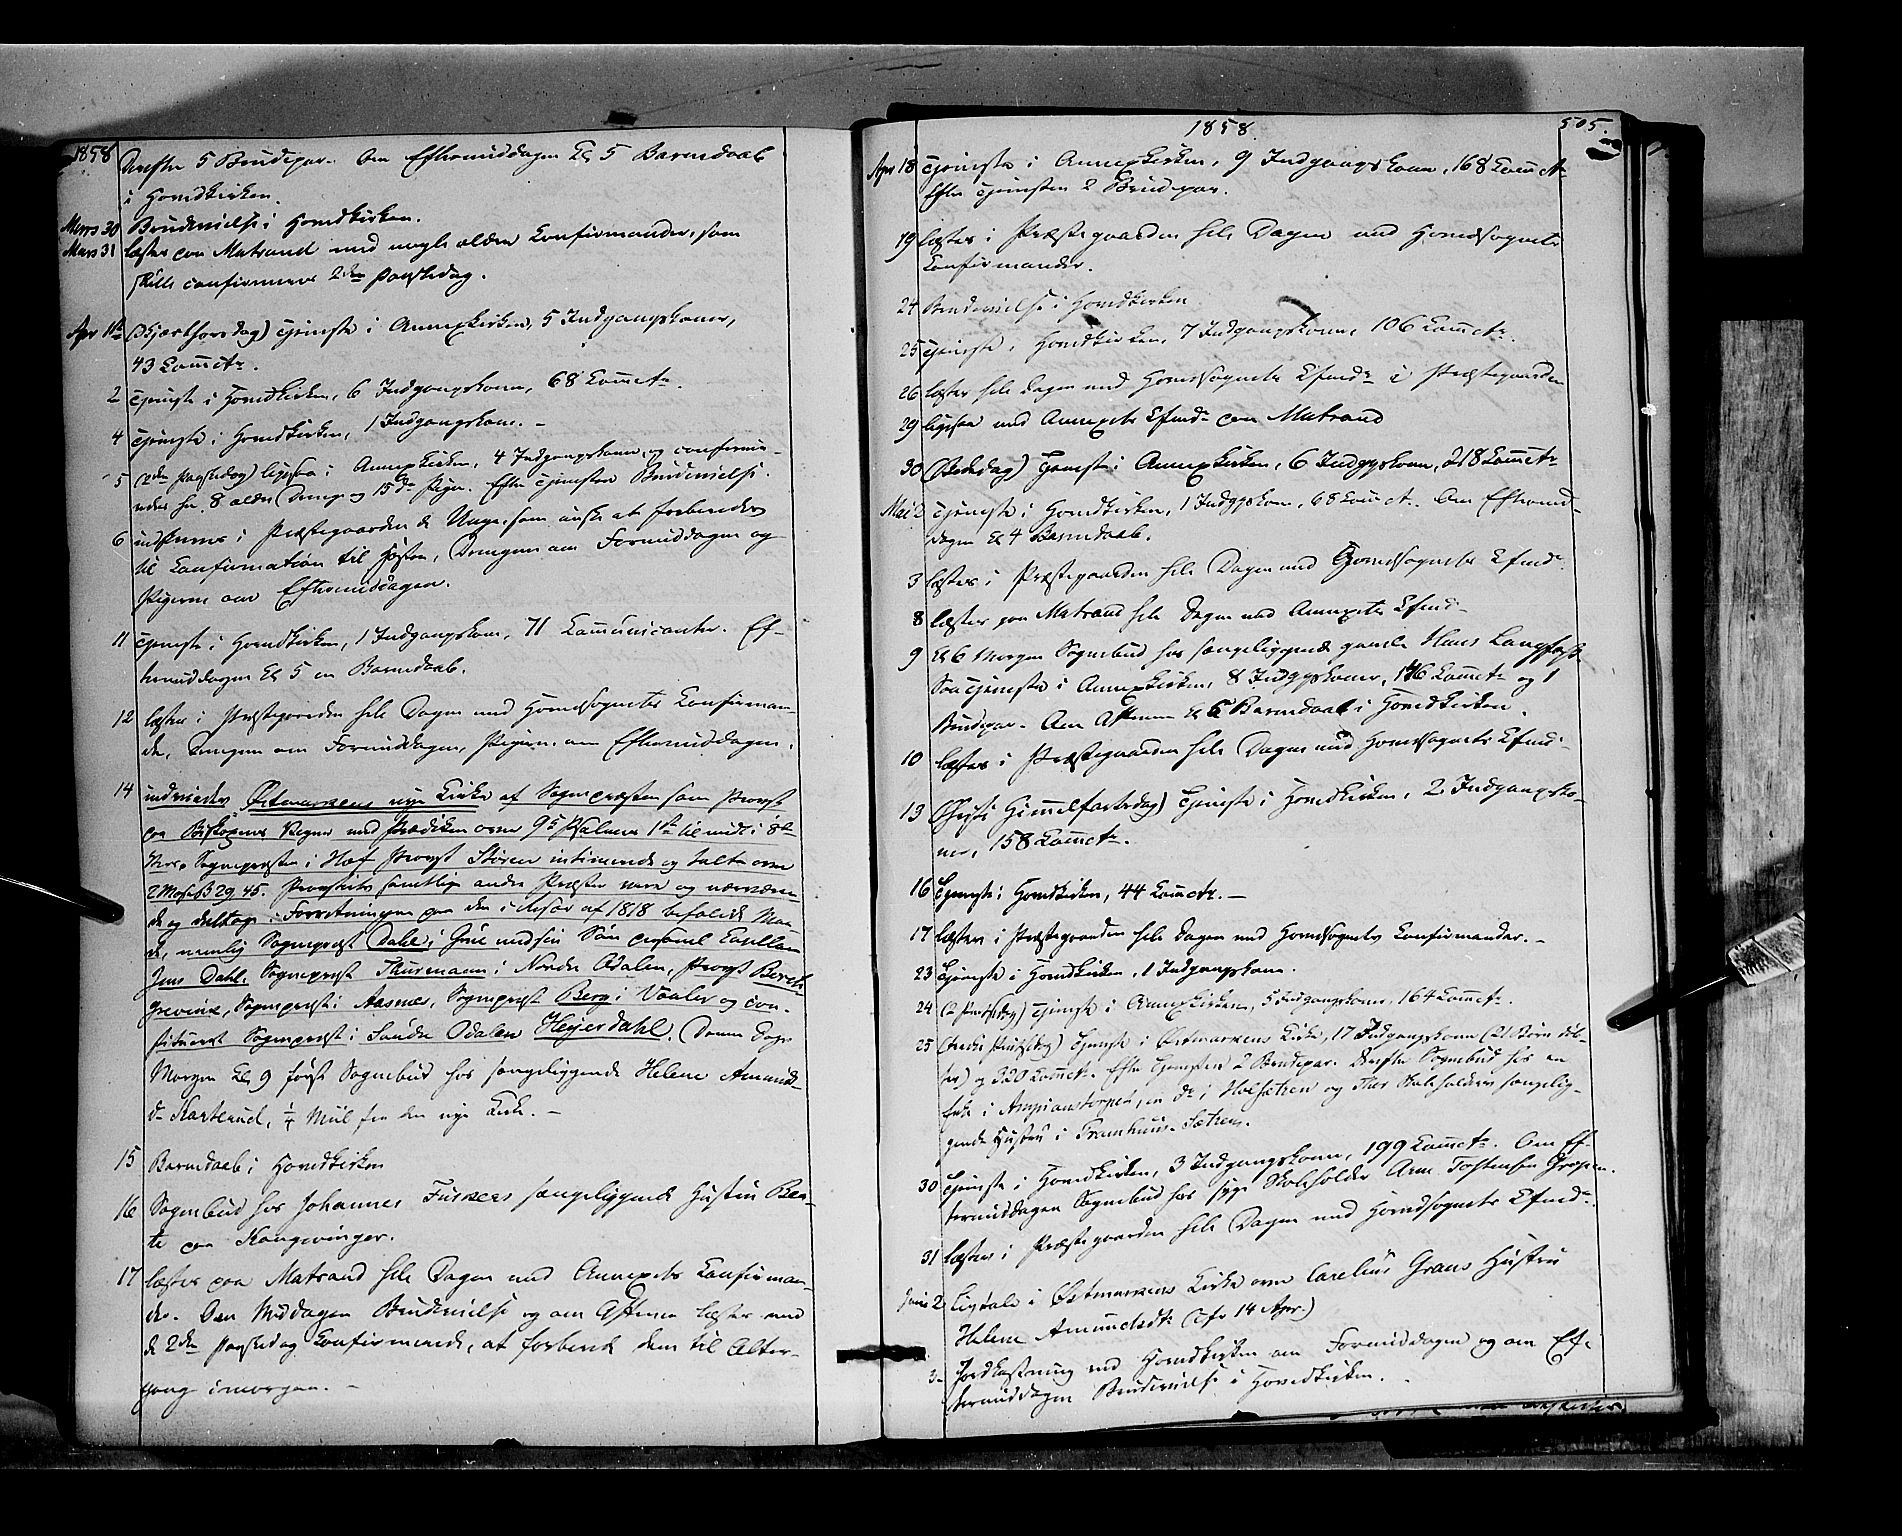 1858
Derefter 5 Brudepar. Om Eftermiddagen Kl 5 Barnedaab
i Hovedkirken.
Marts 30 Brudevielse i Hovedkirken.
Marts 31 læstes paa Matrand med nogle ældre Confirmander, som
skulle confirmeres 2den Paaskedag.
Apr 1ste (Skjærthorsdag) Tjeneste i Annexkirken, 5 Indgangskoner,
43 Commctr.
2 Tjeneste i Hovedkirken, 6 Indgangskoner, 68 Commctr.
4 Tjeneste i Hovedkirken, 1 Indgangskone. –
5 (2den Paaskedag) ligesaa i Annexkirken, 4 Indgangskoner, og confirme-
redes her 8 ældre Drenge og 15 do Piger. Efter Tjenesten Brudevielse.
6 indskreves i Præstegaarden de Unge, som ønske at forberedes
til Confirmation til Høsten, Drengene om Formiddagen og
Pigerne om Eftermiddagen.
11 Tjeneste i Hovedkirken, 1 Indgangskone, 71 Communicanter. Ef-
termiddagen Kl 5 en Barnedaab.
12 læstes i Præstegaarden hele Dagen med Hovedsognets Confirman-
der, Drengene om Formiddagen, Pigerne om Eftermiddagen.
14 indviedes Østmarkens nye Kirke af Sognepræsten som Provst
paa Biskopens Vegne med Prædiken over 95 Psalmes 1ste til midt i 8de
Vers, Sognepræsten i Hof Provst Stören intimerede og talte over
2 Moseb 29.45. Provstiets samtlige andre Præster vare og nærværen-
de og deltoge i Forretningen paa den i Resor af 1818 befalede Maa-
de, nemlig Sognepræst Dahl i Grue med sin Søn personel Capellan
Jens Dahl, Sognepræst Thurmann i Nordre Odalen, Provst Berch-
grevink, Sognepræst i Aasnes, Sognepræst Berg i Vaaler og con-
stitueret Sognepræst i Søndre Odalen Heyerdahl. (Denne Dags
Morgen Kl 9 først Sognebud hos sengeliggende Helene Amunds-
dr Karterud, 1/4 Miil fra den nye Kirke. –
15 Barnedaab i Hovedkirken
16 Sognebud hos Johannes Fuskers sengeliggende Hustru Ber-
te paa Kongsvinger.
17 læstes paa Matrand hele Dagen med Annexets Confirman-
der. Om Middagen Brudevielse og om Aftenen læstes med
de 2den Paaskedag Confirmerede, at forberede dem til Alter-
gang imorgen. –
1858.
505.
Apr 18 Tjeneste i Annexkirken, 9 Indgangskoner, 168 Commctr
Efter Tjenesten 2 Brudepar.
19 læstes i Præstegaarden hele Dagen med Hovedsognets
Confirmander.
24 Brudevielse i Hovedkirken.
25 Tjeneste i Hovedkirken, 7 Indgangskoner, 106 Commctr.
26 læstes hele Dagen med Hovedsognets Cfmdr i Præstegaarden
29 ligesaa med Annexets Cfmdr paa Matrand
30 (Bededag) Tjeneste i Annexkirken, 6 Indggskoner, 218 Commctr
Mai 2 Tjeneste i Hovedkirken, 1 Indggskone, 68 Commctr. Om Eftermid-
dagen Kl 4 Barnedaab.
3 læstes i Præstegaarden hele Dagen med Hovedsognets Cfmdr.
8 læstes paa Matrand hele Dagen med Annexets Cfmdr
9 Kl 6 Morgen Sognebud hos sengeliggende gamle Hans
Saa Tjeneste i Annexkirken, 8 Indggskoner, 146 Commctr og 1
Brudepar. Om Aftenen Kl 6 Barnedaab i Hovedkirken.
10 læstes i Præstegaarden hele Dagen med Hovedsognets Cfmdr.
13 (Christi Himmelfartsdag) Tjeneste i Hovedkirken, 2 Indgangsko-
ner, 158 Commctr.
16 Tjeneste i Hovedkirken, 44 Commctr. –
17 læstes i Præstegaarden hele Dagen med Hovedsognets Confirmander. –
23 Tjeneste i Hovedkirken, 1 Indgangskone.
24 (2 Pintsedag) Tjeneste i Annexkirken, 5 Indgangskoner, 164 Commctr.
25 (tredie Pintsedag) Tjeneste i Østmarkens Kirke, 17 Indgangskoner (21 Børn døb-
tes) og 320 Commctr. Efter Tjenesten 2 Brudepar. Derefter Sognebud hos en
i , en do i og Skoleholders sengelig-
gende Hustru i
30 Tjeneste i Hovedkirken, 3 Indgangskoner, 199 Commctr. Om Ef-
termiddagen Sognebud hos syge Skoleholder Arne Torstensen
31 læstes i Præstegaarden hele Dagen med Hovedsognets Cfmdr.
Juni 2 Ligtale i Østmarkens Kirke over Carelius Hustru
Helene Amundsdtr (cfr 14 Apr.)
3 Jordkastning ved Hovedkirken om Formiddagen og om Ef-
termiddagen Brudevielse i Hovedkirken.